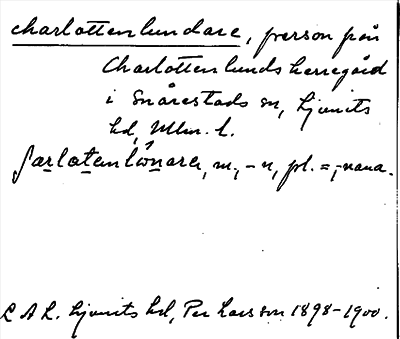 charlottenlundare, person på
Charlottenlunds herregård
i Snårestads sn, Ljunits
hd, Mlm. l.
ʃarlotenlönara, m., -n, pl. =, -nana.
L A L. Ljunits hd, Per Larsson 1898-1900.